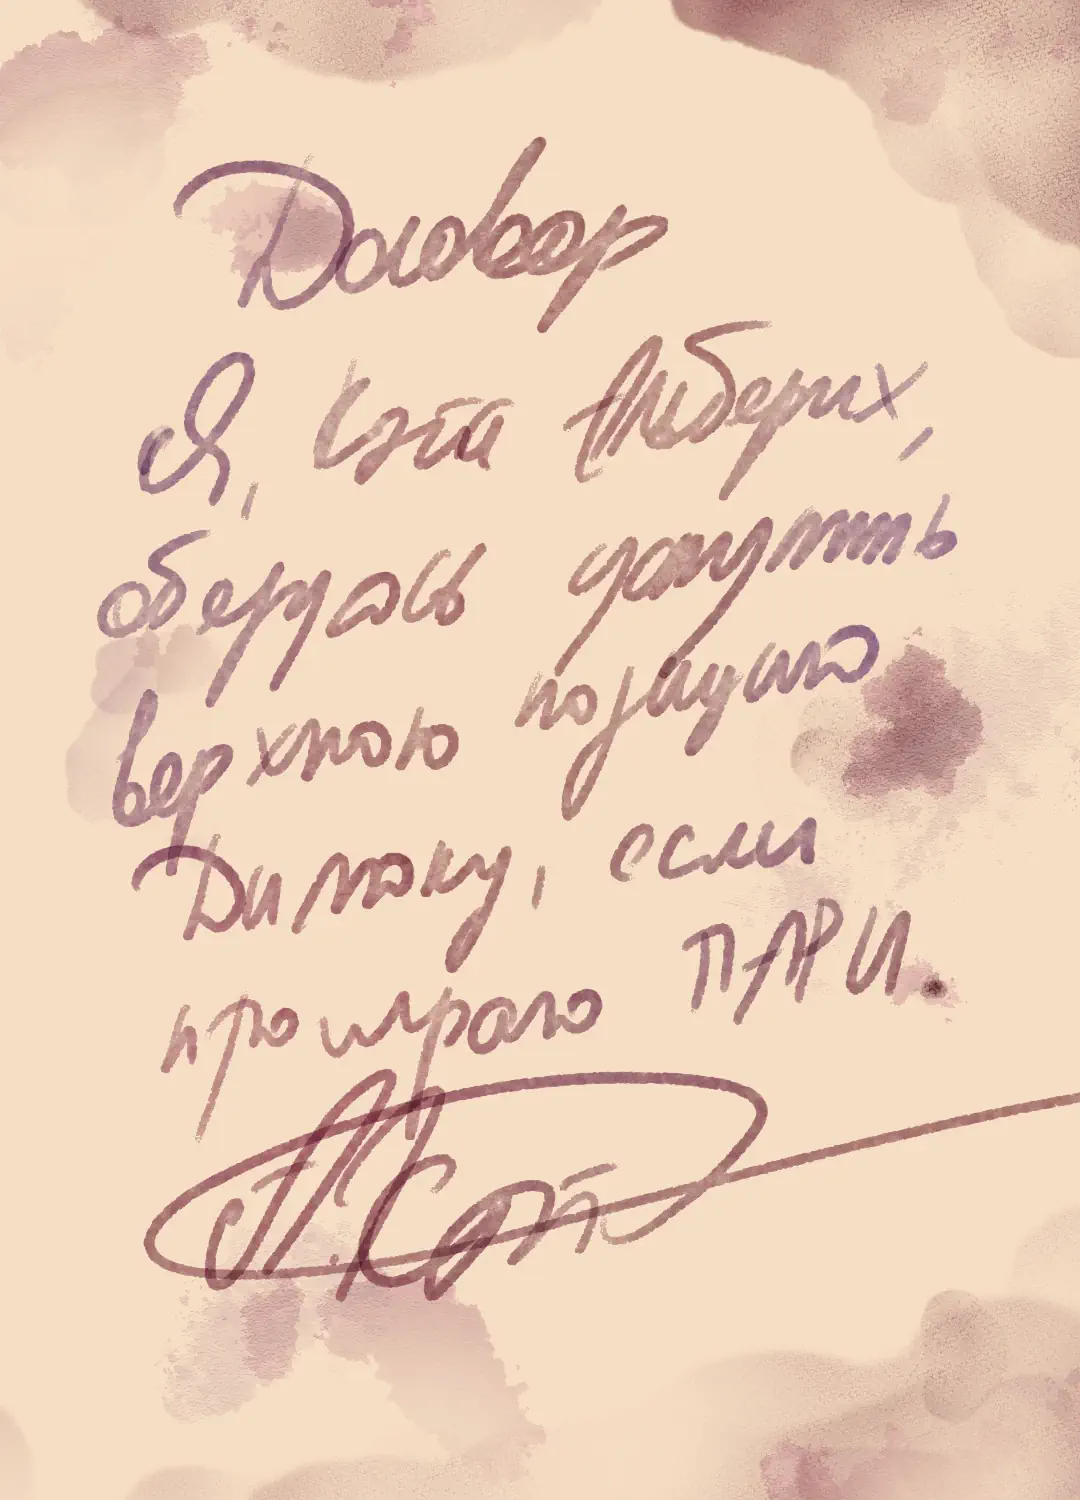 Договор
Я, Кэти Альберих,
оберуась уступить
верхнюю позицию
Димону, если
проиграю ПАРИ.
А. Кэти